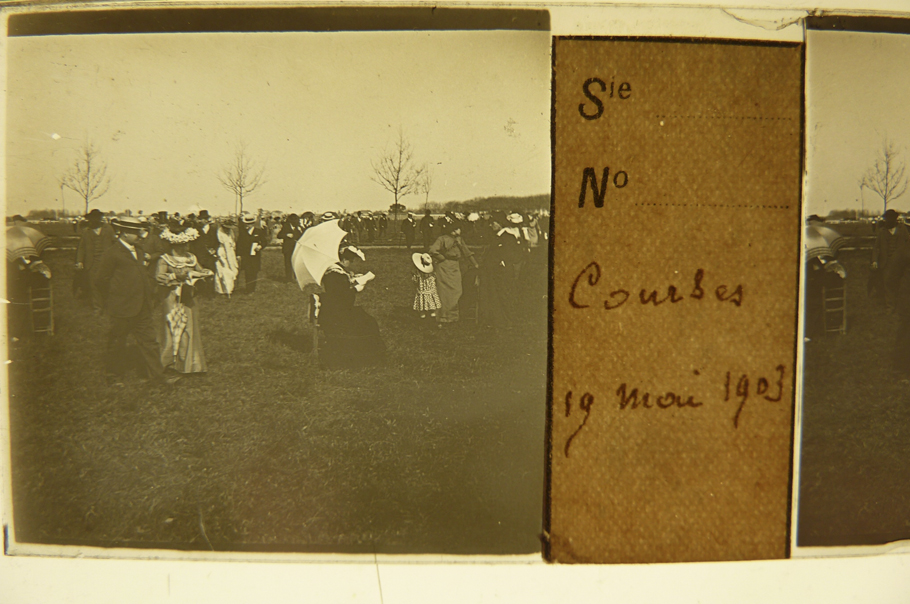 Sie
No
Courses
19 mai 1903